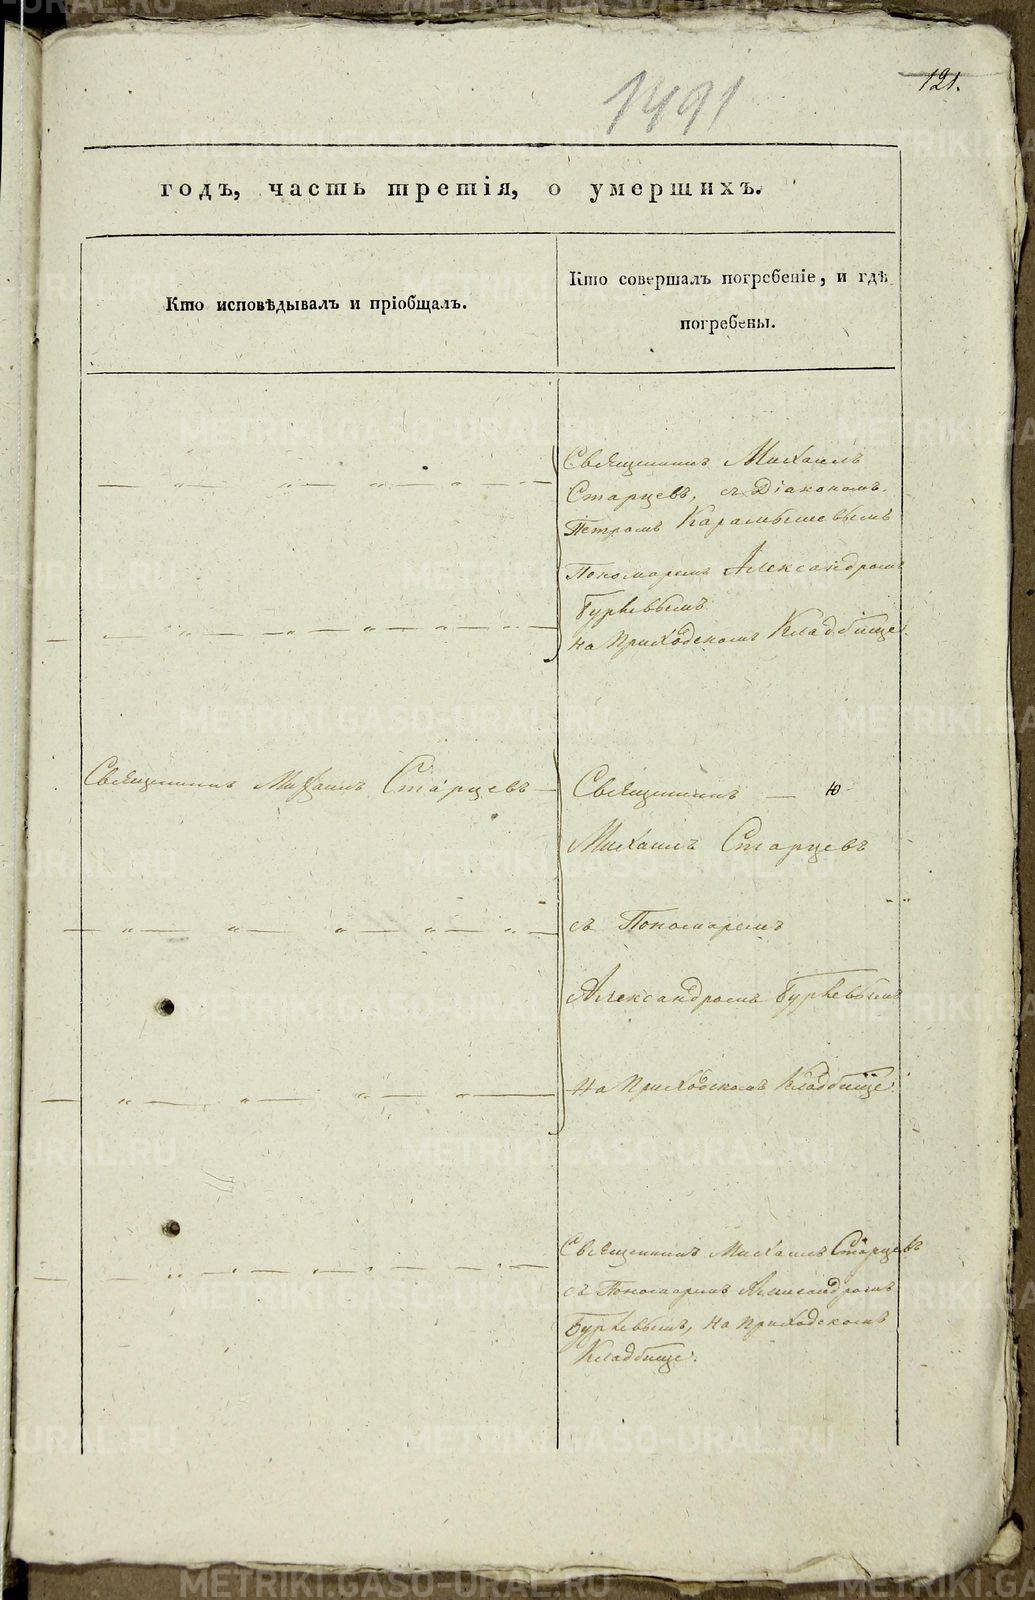 121.
1491
годъ, часть третія, о умершихъ.
Кто исповѣдывалъ и пріобщалъ.
Кто совершалъ погребеніе, и гдѣ
погребены.
Священникъ Михаилъ
Старцевъ, съ Діакономъ
Петромъ Карамышевымъ
Пономаремъ Александромъ
Гурьевымъ
на Приходскомъ Кладбище.
Священникъ Михаилъ Старцевъ
Священникъ
Михаилъ Старцевъ
съ Пономаремъ
Александромъ Гурьевымъ
на Приходскомъ Кладбище
Священникъ Михаилъ Старцевъ
съ Пономаремъ Александромъ
Гурьевымъ, на Приходскомъ
Кладбище.
METRIKI.GASO-URAL.RU